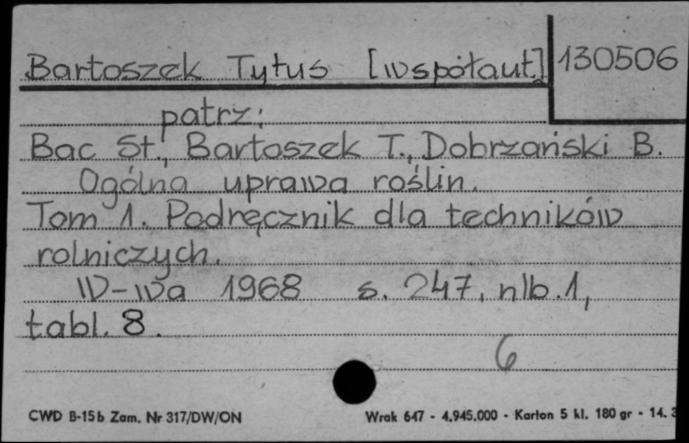 Bartoszek Tytus [współaut.] 130506
patrz:
Bac St., Bartoszek T., Dobrzański B.
Ogólna uprawa roślin.
Tom 1. Podręcznik dla techników
rolniczych.
W-wa 1968 s. 247, nlb. 1,
tabl. 8.
6
CWD B-15b Zam. Nr 317/DW/ON Wrak 647 - 4.945.000 - Karton 5 kl. 180 gr - 14. 3